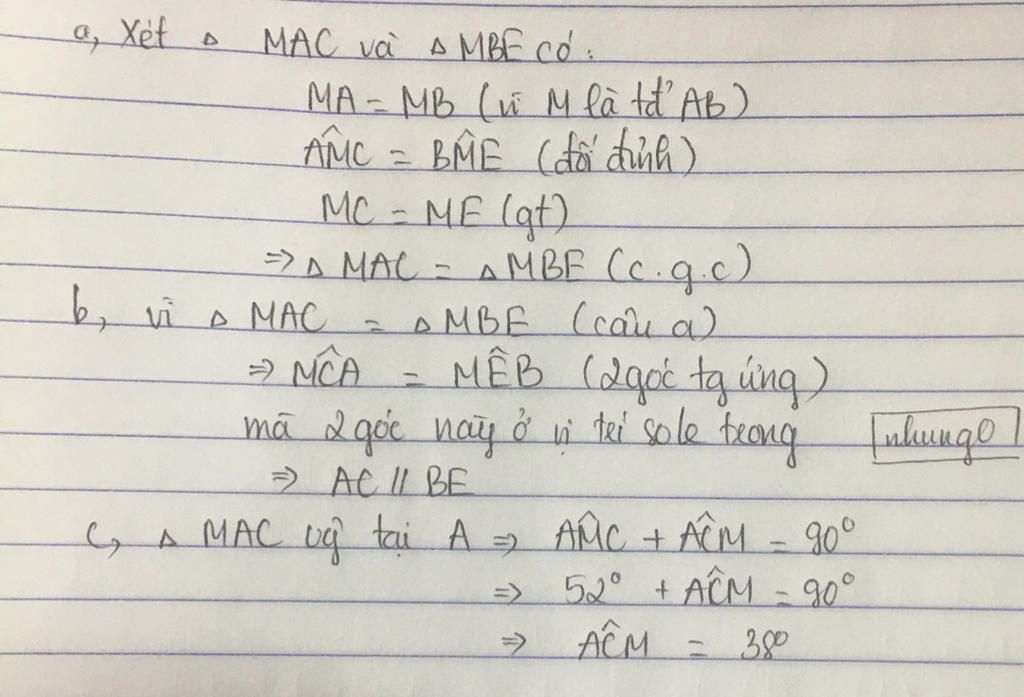 a, Xét △ MAC và △ MBE có:
MA = MB (vì M là tđ' AB)
AM̂C = BM̂E (đối đỉnh)
MC = ME (gt)
=> △ MAC = △ MBE (c.g.c)
b, vì △ MAC = △ MBE (câu a)
=> MĈA = MÊB (2 góc tg ứng)
mà 2 góc này ở vị trí sole trong
nhung0
=> AC // BE
c, △ MAC vg tại A => AM̂C + AĈM = 90°
=> 52° + AĈM = 90°
=> AĈM = 38°